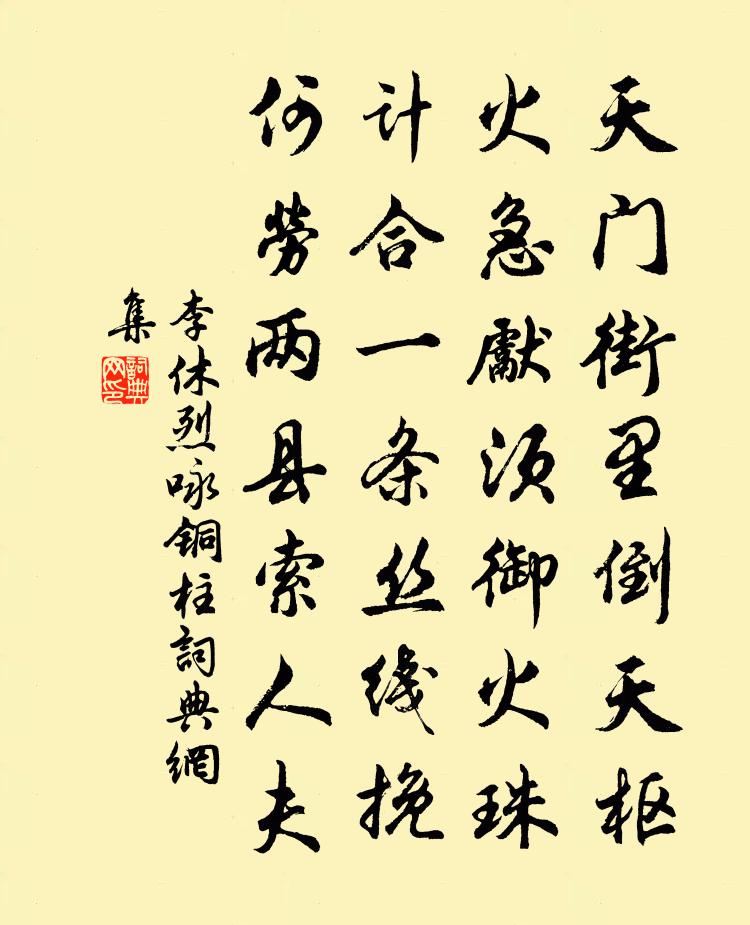 天门街里倒天枢
火急献须御火珠
计合一条丝线挽
何劳两县索人夫
李休烈咏铜柱詞典網
集
詞典網印